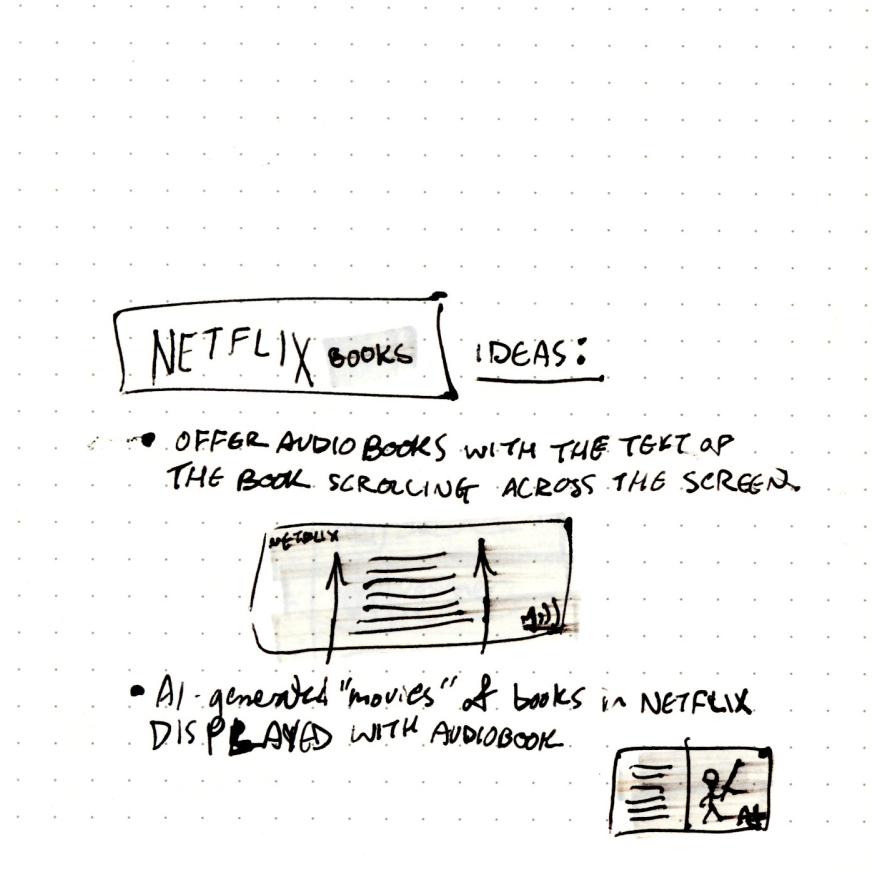 NETFLIX BOOKS IDEAS:
• OFFER AUDIO BOOKS WITH THE TEXT OF
THE BOOK SCROLLING ACROSS THE SCREEN.
NETFLIX
• AI-generated "movies" of books in NETFLIX
DISPLAYED WITH AUDIOBOOK
AI